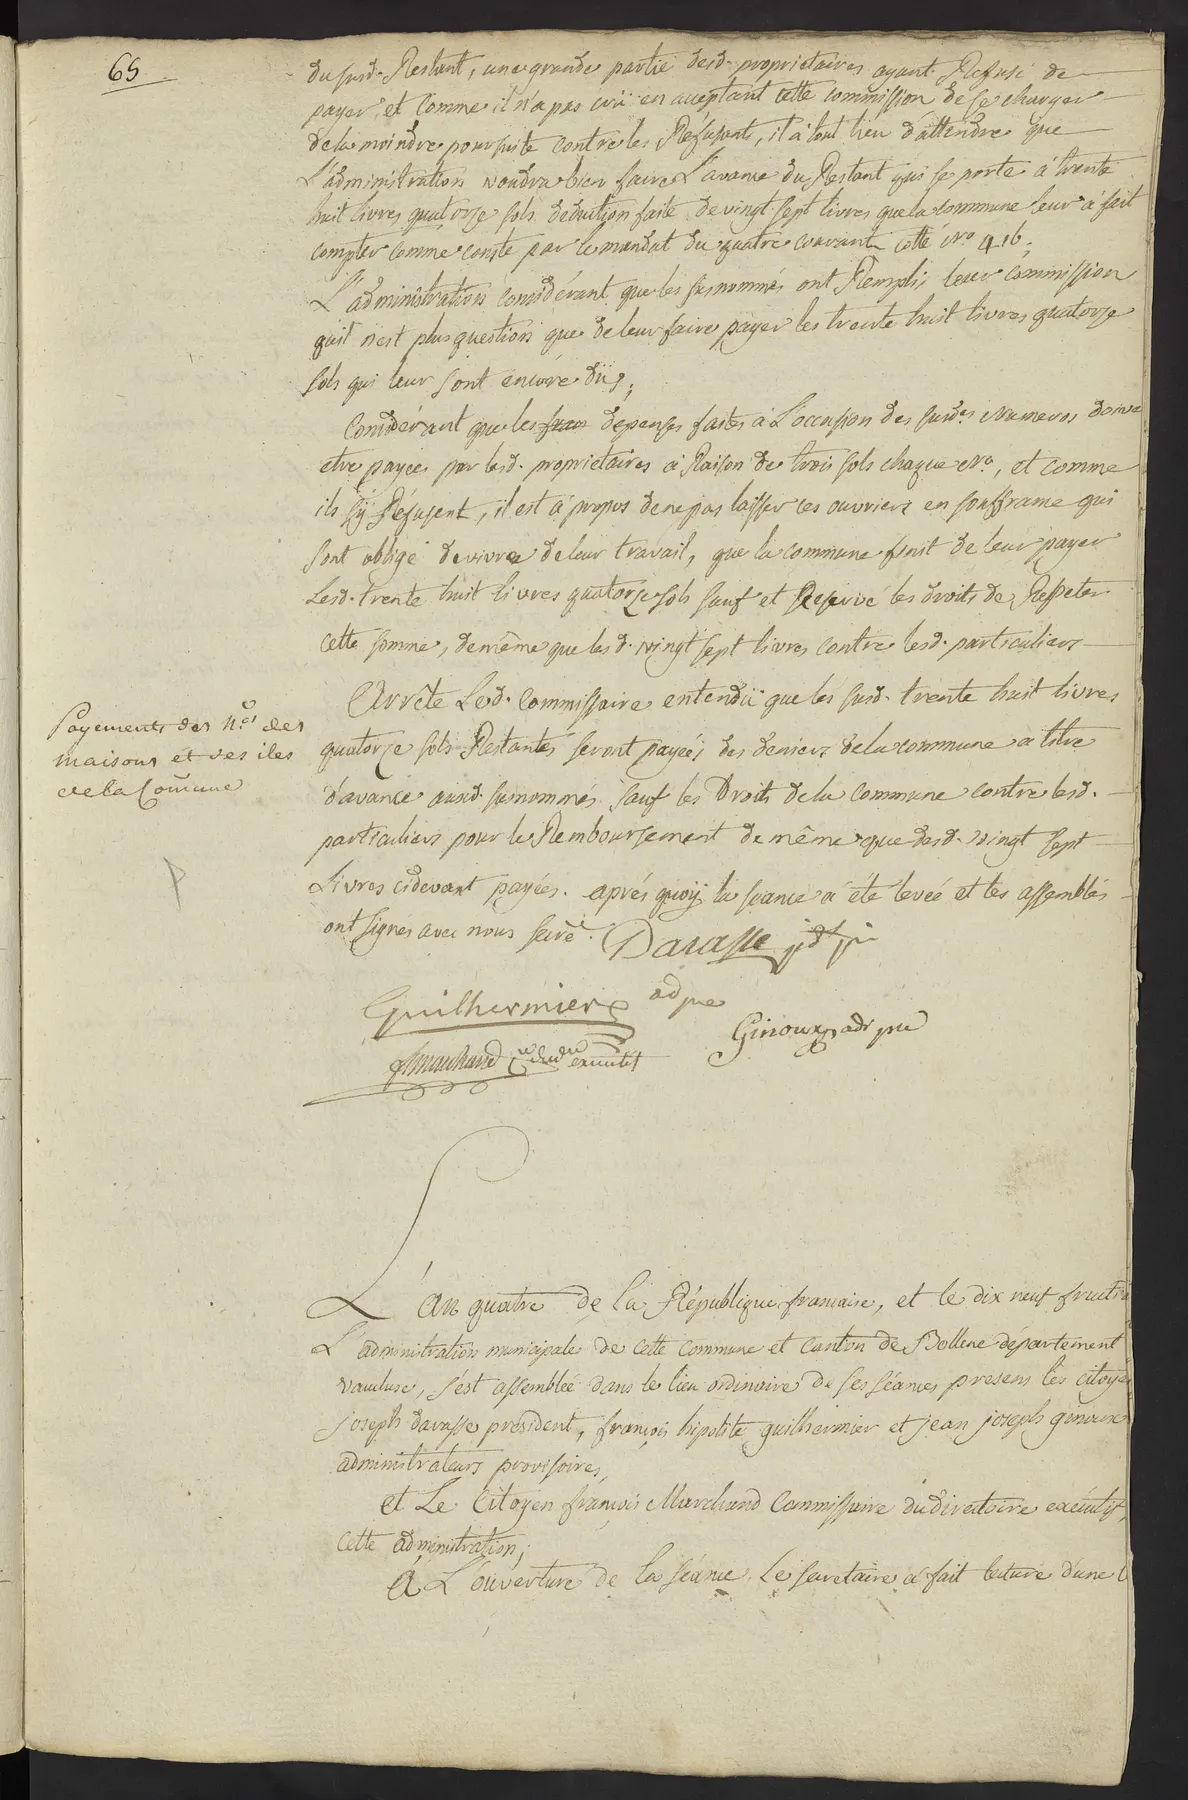 65
du susd. Restant, une grande partie desd. propriétaires ayant Refusé de
payer, et Comme il n'a pas crû en acceptant cette commission de se charger
de la moindre poursuite contre les Réfusants, il à tout lieu d'attendre que
L'administration voudra bien faire L'avance du Restant qui se porte à trente
huit livres quatorze sols déduction faite de vingt sept livres que la commune leur à fait
compter comme conste par le mandat du quatre courant cotté No 416;
L'administration considérant que les susnommés ont Rempli leur commission
qu'il n'est plus question que de leur faire payer les trente huit livres quatorze
sols qui leur sont encore düs;
Considérant que les frais depenses faites à L'occasion des susdts Numeros doivent
etre payées par lesd. proprietaires à Raison de trois sols chaque No, et comme
ils s'ÿ Réfusent, il est à propos de ne pas laisser ces ouvriers en souffrance qui
sont obligé de vivre de leur travail, que la commune finit de leur payer
Lesd. trente huit livres quatorze sols sauf et Reservé les droits de Repeter
cette somme, de même que lesd. vingt sept livres contre lesd. particuliers
Arrête Led. Commissaire entendü que les susd. trente huit livres
quatorze sols Restantes seront payées des deniers de la commune a titre
d'avance auxd. susnommés sauf les Droits de la commune contre lesd.
particuliers pour le Remboursement de même que desd. vingt sept
Livres cidevant payées. après quoÿ la séance à été levée et les assemblés
ont signés avec nous secre.
Payements des Nos des
maisons et des iles
de la Comune
Davasse pdt
Guilhermier ad pre
Ginoux adr pre
fs marchand cre du dre executif
L'An quatre de la République française, et le dix neuf fructi
L'administration municipale de cette commune et canton de Bollene département
vaucluse, s'est assemblée dans le lieu ordinaire de ses séances presens les citoyen
joseph davasse président, françois hipolite guilhermier et jean joseph ginoux
administrateurs provisoires,
et Le Citoyen françois Marchand Commissaire du directoire exécutif,
cette administration;
A L'ouverture de la séance, Le secretaire à fait lecture d'une